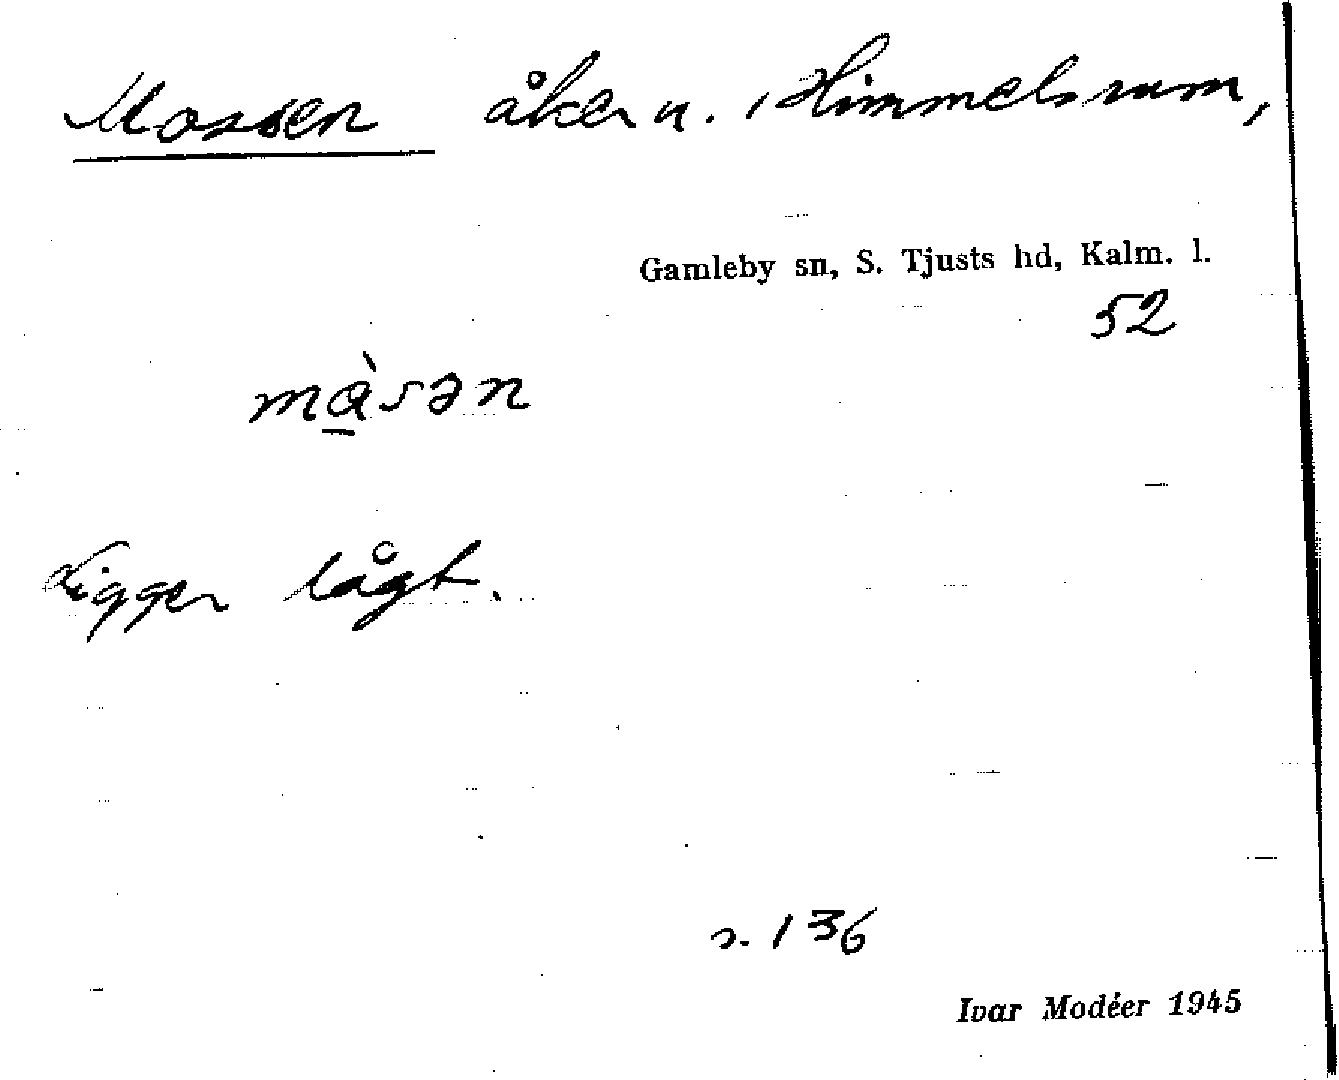 Mossen åker u. Himmelsrum,
Gamleby sn, S. Tjusts hd, Kalm. l.
52
màsən
Ligger lågt.
s. 136
Ivar Modéer 1945